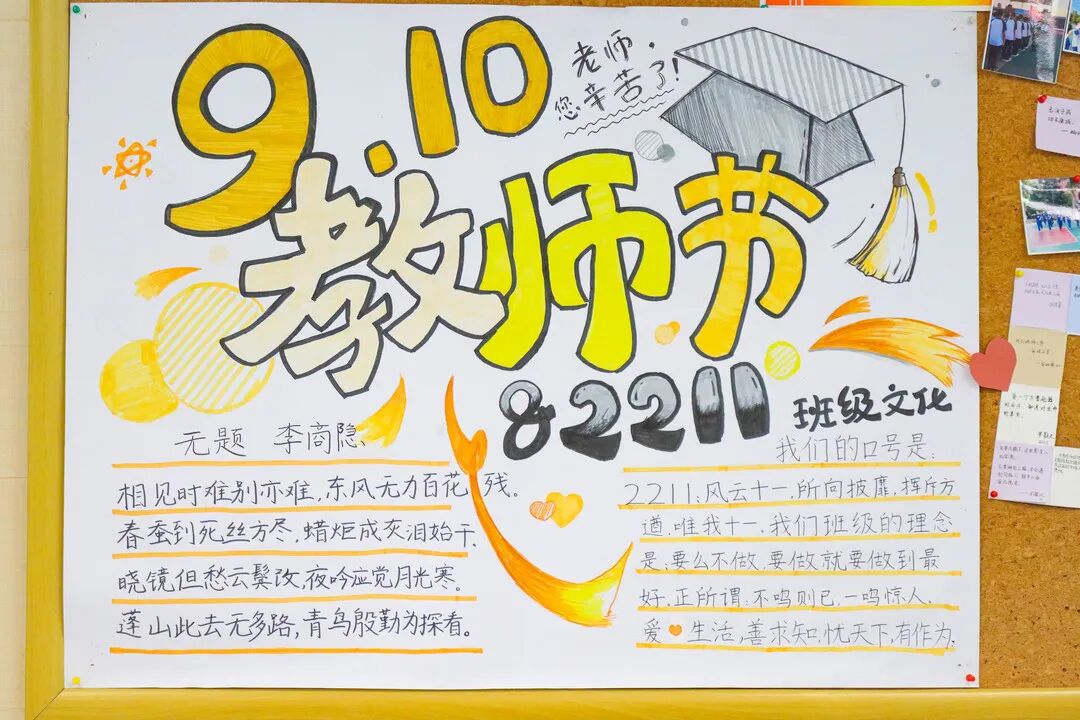 9.10
老师,
您辛苦了!
教师节
& 2211 班级文化
无题 李商隐
相见时难别亦难,东风无力百花残。
春蚕到死丝方尽,蜡炬成灰泪始干.
晓镜但愁云鬓改,夜吟应觉月光寒.
蓬山此去无多路,青鸟殷勤为探看。
我们的口号是:
2211:风云十一,所向披靡,挥斥方
遒.唯我十一.我们班级的理念
是:要么不做,要做就要做到最
好.正所谓:不鸣则已,一鸣惊人.
爱生活,善求知,忧天下,有作为.